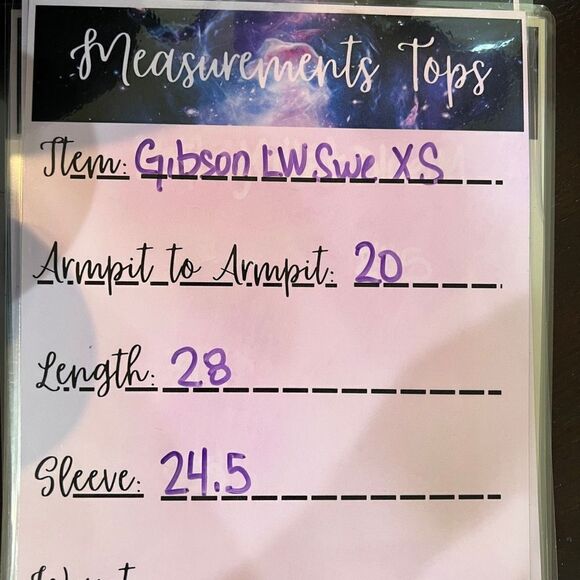 Measurements Tops
Item: Gibson LW Swe XS
Armpit to Armpit: 20
Length: 28
Sleeve: 24.5